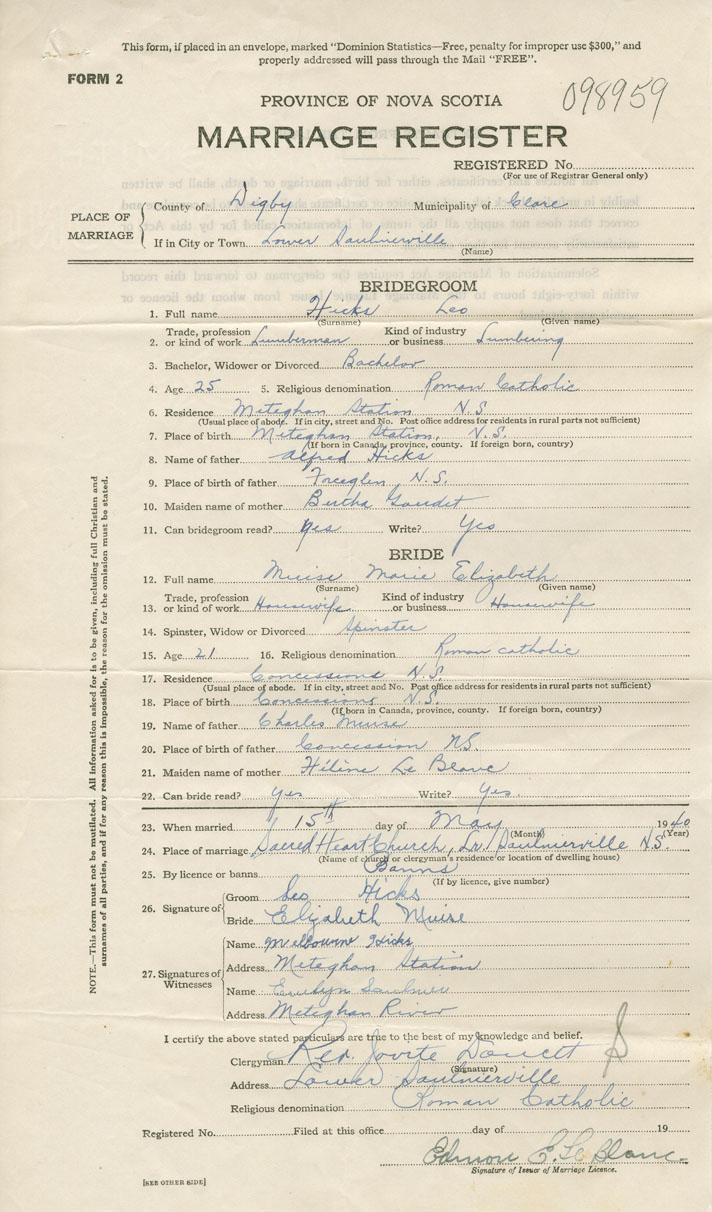 This form, if placed in an envelope, marked "Dominion Statistics—Free, penalty for improper use $300," and
properly addressed will pass through the Mail "FREE".
FORM 2
098959
PROVINCE OF NOVA SCOTIA
MARRIAGE REGISTER
REGISTERED No.
(For use of Registrar General only)
PLACE OF MARRIAGE
County of Digby Municipality of Clare
If in City or Town Lower Saulnierville
(Name)
BRIDEGROOM
1. Full name Hicks Leo
(Surname) (Given name)
2. Trade, profession or kind of work Lumberman Kind of industry or business Lumbering
3. Bachelor, Widower or Divorced Bachelor
4. Age 25 5. Religious denomination Roman Catholic
6. Residence Meteghan Station N.S.
(Usual place of abode. If in city, street and No. Post office address for residents in rural parts not sufficient)
7. Place of birth Meteghan Station, N.S.
(If born in Canada, province, county. If foreign born, country)
8. Name of father Alfred Hicks
9. Place of birth of father N.S.
10. Maiden name of mother Bertha Gaudet
11. Can bridegroom read? yes Write? Yes
BRIDE
12. Full name Muise Marie Elizabeth
(Surname) (Given name)
13. Trade, profession or kind of work Housewife Kind of industry or business Housewife
14. Spinster, Widow or Divorced Spinster
15. Age 21 16. Religious denomination Roman catholic
17. Residence Concessions N.S.
(Usual place of abode. If in city, street and No. Post office address for residents in rural parts not sufficient)
18. Place of birth Concessions N.S.
(If born in Canada, province, county. If foreign born, country)
19. Name of father Charles Muise
20. Place of birth of father Concession N.S.
21. Maiden name of mother Hélène Le Blanc
22. Can bride read? yes Write? Yes.
23. When married 15th day of May 1940
(Month) (Year)
24. Place of marriage Sacred Heart Church, Lr. Saulnierville N.S.
(Name of church or clergyman's residence or location of dwelling house)
25. By licence or banns Banns
(If by licence, give number)
26. Signature of
Groom Leo Hicks
Bride Elizabeth Muise
27. Signatures of Witnesses
Name Melbourne Hicks
Address Meteghan Station
Name Evelyn Saulnier
Address Meteghan River
I certify the above stated particulars are true to the best of my knowledge and belief.
Clergyman Rev. Jovite Doucett
(Signature)
Address Lower Saulnierville
Religious denomination Roman Catholic
Registered No. Filed at this office day of 19
Edmon E. Le Blanc
Signature of Issuer of Marriage Licence.
[SEE OTHER SIDE]
NOTE.—This form must not be mutilated. All information asked for is to be given, including full Christian and
surnames of all parties, and if for any reason this is impossible, the reason for the omission must be stated.